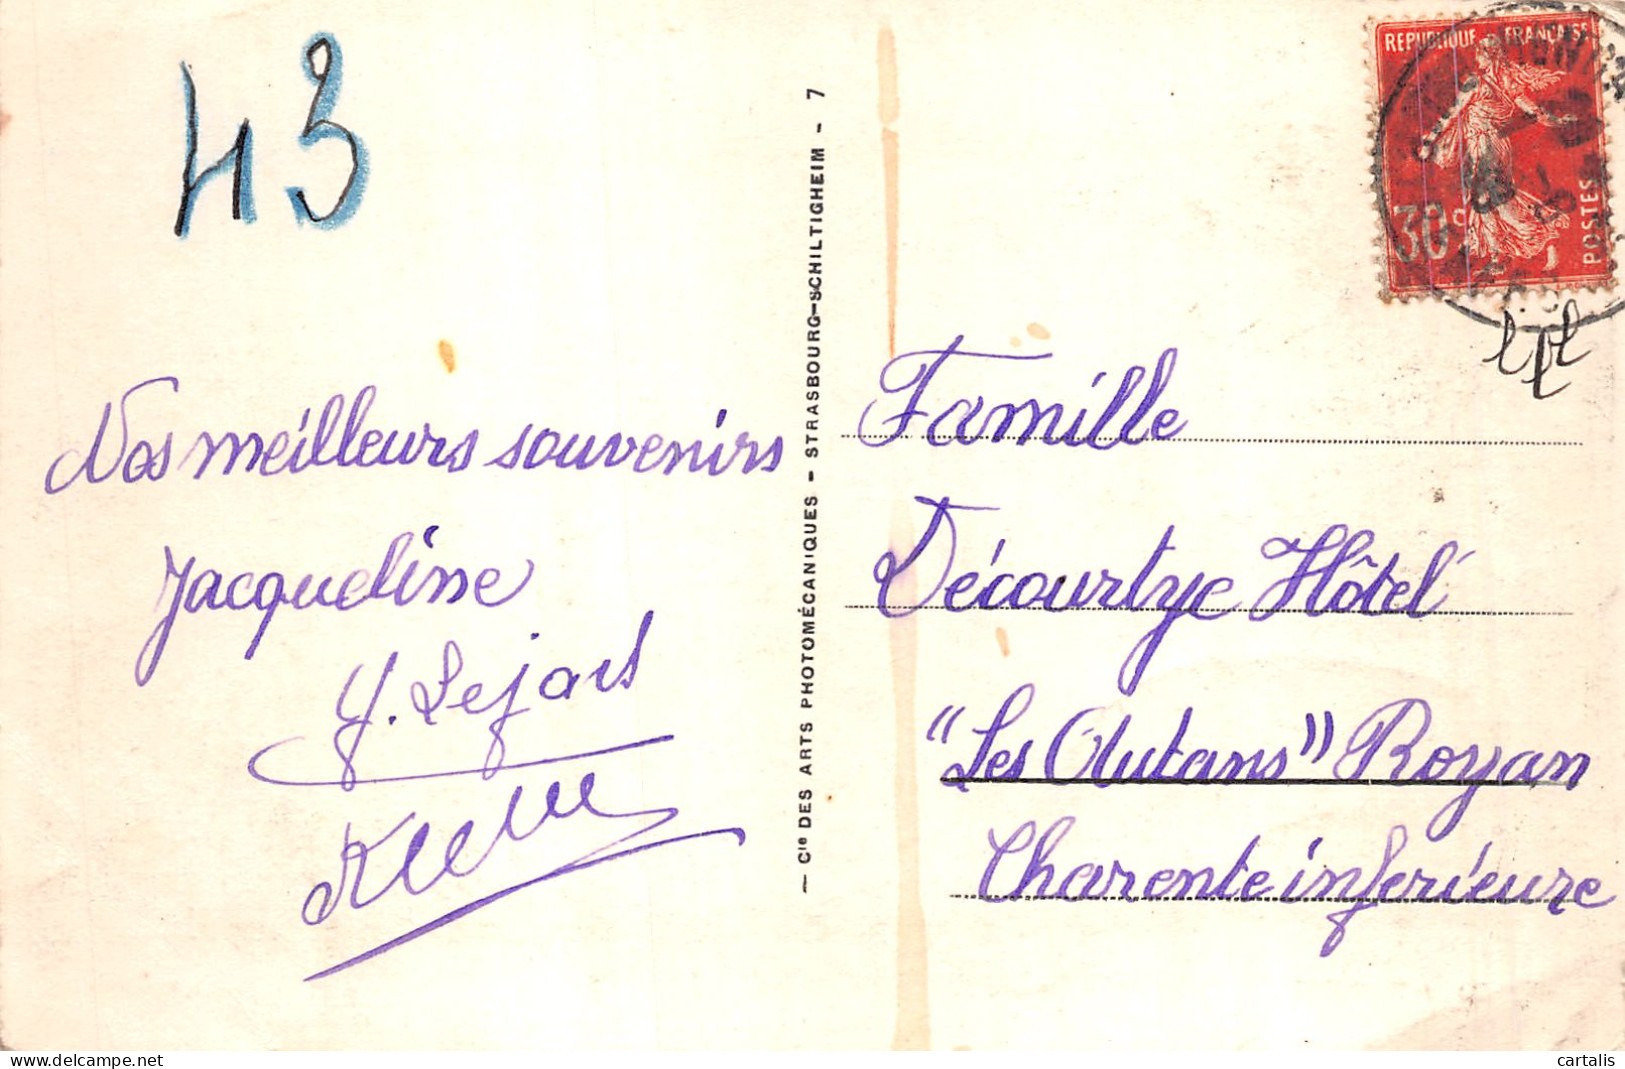 43
Nos meilleurs souvenirs
Jacqueline
Y. Lejars
— Cie DES ARTS PHOTOMÉCANIQUES - STRASBOURG-SCHILTIGHEIM - 7
REPUBLIQUE FRANCAISE
30c
POSTES
Famille
Décourtye Hôtel
"Les Autans" Royan
Charente inférieure
delcampe.net
cartalis